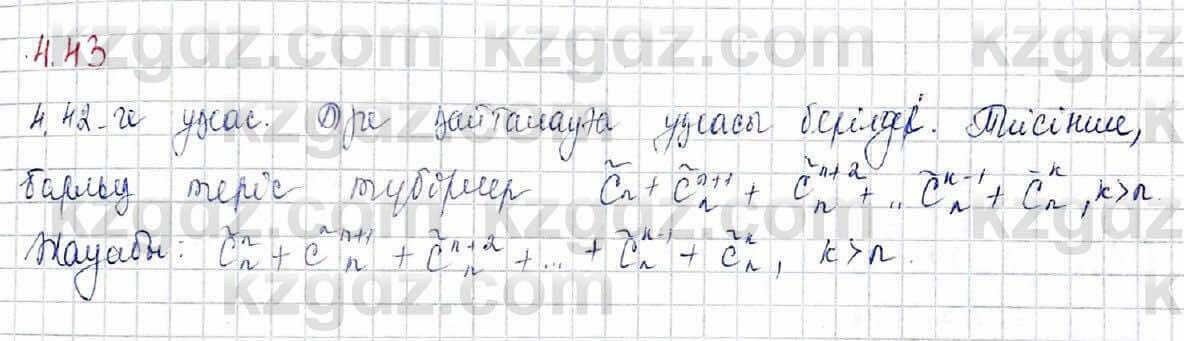 4.43
4.42-ге ұқсас. Әре қайталауға ұқсасы беріледі. Тиісінше,
барлық теріс түбірлер C̃ₙ + C̃ₙⁿ⁺¹ + C̃ₙⁿ⁺² + .. C̃ₙᵏ⁻¹ + C̃ₙᵏ, k>n.
Жауабы: C̃ₙⁿ + C̃ₙⁿ⁺¹ + C̃ₙⁿ⁺² + ... + C̃ₙᵏ⁻¹ + C̃ₙᵏ, k>n.
kzgdz.com